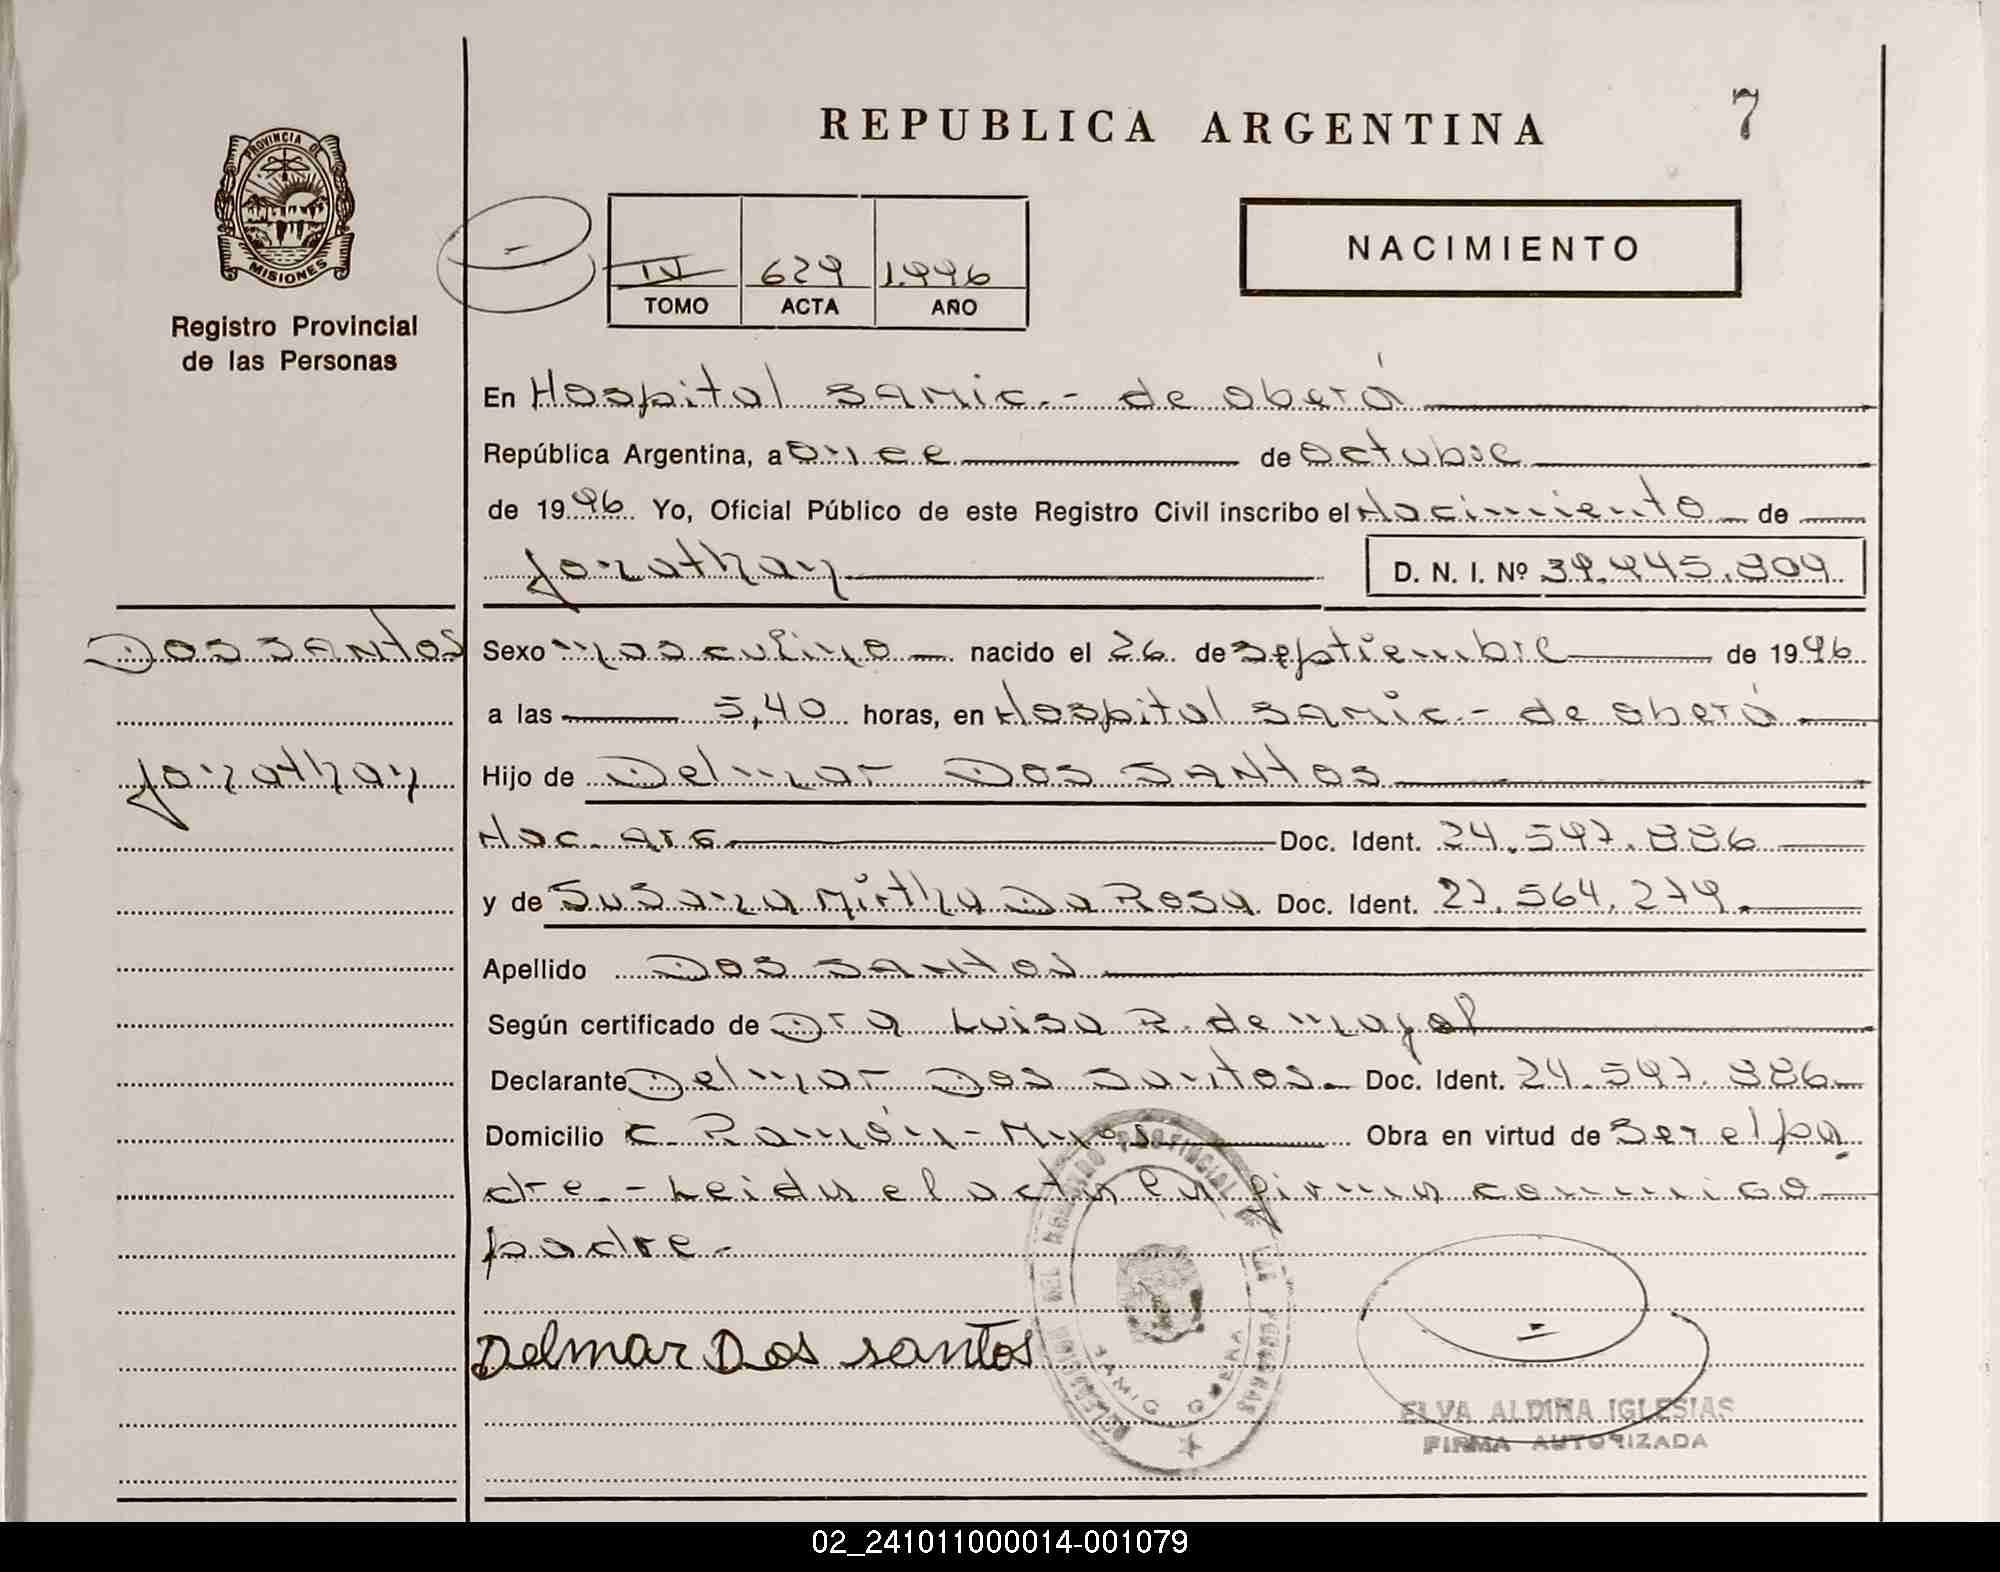 REPUBLICA ARGENTINA
7
PROVINCIA DE
MISIONES
Registro Provincial
de las Personas
IV 629 1.996
TOMO ACTA AÑO
NACIMIENTO
En Hospital SAMIC.- de oberá
República Argentina, a once de octubre
de 1996 Yo, Oficial Público de este Registro Civil inscribo el Nacimiento de
Jonathan D. N. I. Nº
Dos SANtos
Jonathan
Sexo masculino nacido el 26 de septiembre de 1996
a las 5,40 horas, en Hospital SAMIC.- de oberá
Hijo de Delmar Dos SANtos
Nac. arg Doc. Ident. 24.597.886
y de Susana Mirtha Da Rosa Doc. Ident. 27.564.279.
Apellido Dos SANtos
Según certificado de Dra Luisa R. de
Declarante Delmar Dos Santos. Doc. Ident. 24.597.886
Domicilio C. Ramón - M. Obra en virtud de ser el pa
dre.- Leida el acta la firma conmigo
padre.-
Delmar Dos santos
DELEGACION DEL REGISTRO PROVINCIAL DE LAS PERSONAS
SAMIC OBERA
ELVA ALDINA IGLESIAS
FIRMA AUTORIZADA
02_241011000014-001079